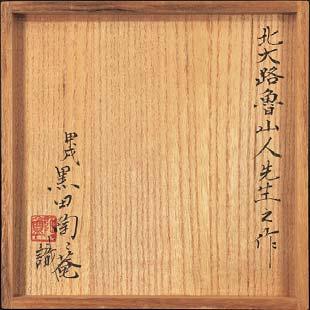 北大路魯山人先生之作
甲戌
黒田陶々庵
識